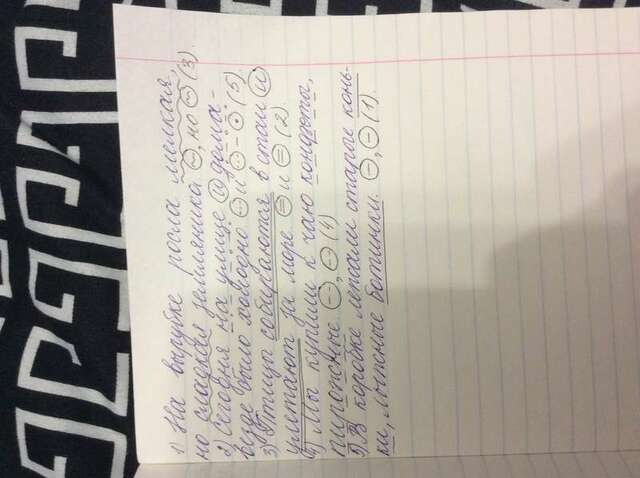 1) На вырубке росла мелкая,
но сладкая земляника ⊖, но ⊖ (3).
2) Сегодня на улице и дома -
везде было холодно. ⊖ и ⊖ - ⊙ (5)
3) Птицы собираются в стаи и
улетают за море. ⊜ и ⊜ (2)
4) Мы купили к чаю конфеты,
пирожные ⊖, ⊖ (1)
5) В коробке лежали старые конь-
ки, лыжные ботинки. ⊖, ⊖ (1).